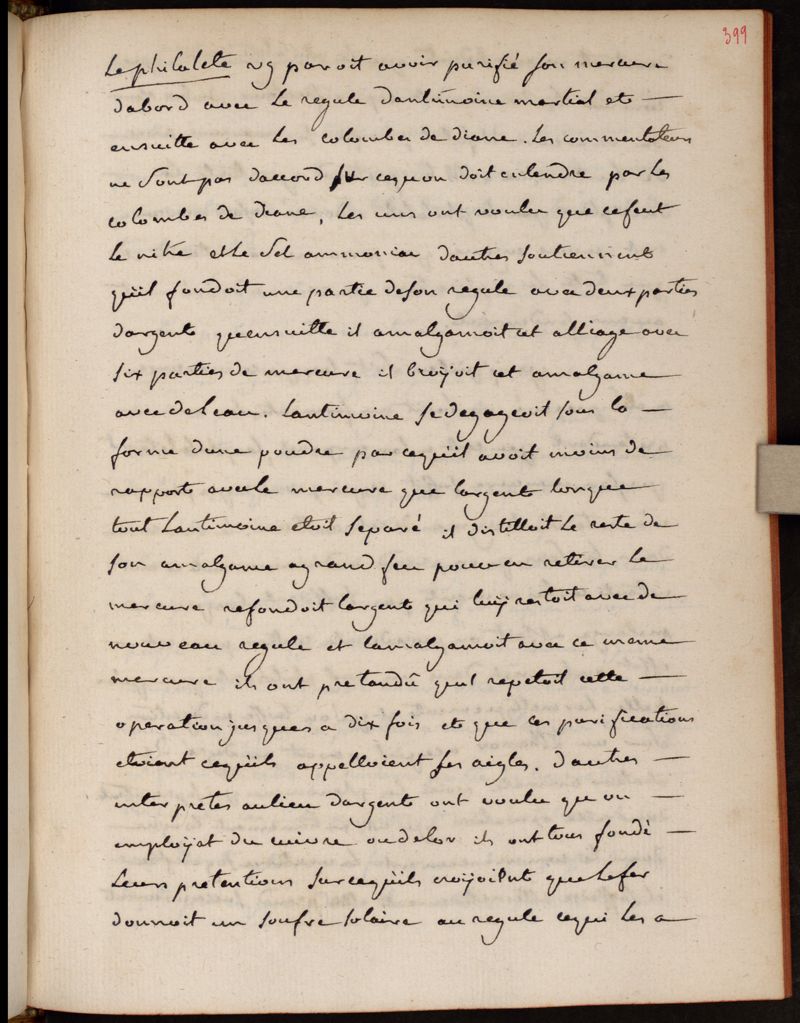 399
Le philalete paroit avoir purifié son mercure
dabord avec le regule dantimoine martial et —
ensuitte avec les colombes de diane. Les commentateurs
ne sont pas daccord sur cequon doit entendre par les
colombes de diane, les uns ont voulu que cefeut
le nitre et le sel ammoniac dautres soutiennent
quil fondoit une partie deson regule avec deux parties
dargent quensuitte il amalgamoit cet alliage avec
six parties de mercure il broÿoit cet amalgame
avec deleau. Lantimoine se degageoit sous la —
forme dune poudre par cequil avoit moins de
rapport avecle mercure que largent lorsque
tout Lantimoine etoit separé il distilloit le reste de
son amalgame a grand feu pour en retirer le
mercure refondoit largent qui luÿ restoit avec de
nouveau regule et lamalgamoit avec ce meme
mercure ils ont pretandû quil repetoit cette —
operation jusques a dix fois et que ces purifications
etoient cequils appelloient ses aigles. Dautres —
interpretes aulieu dargent ont voulu qu on —
emploÿat du cuivre oudelor ils ont tous fondé —
Leurs pretentions surcequils croÿoient que lefer
donnoit un soufre solaire au regule cequi les a